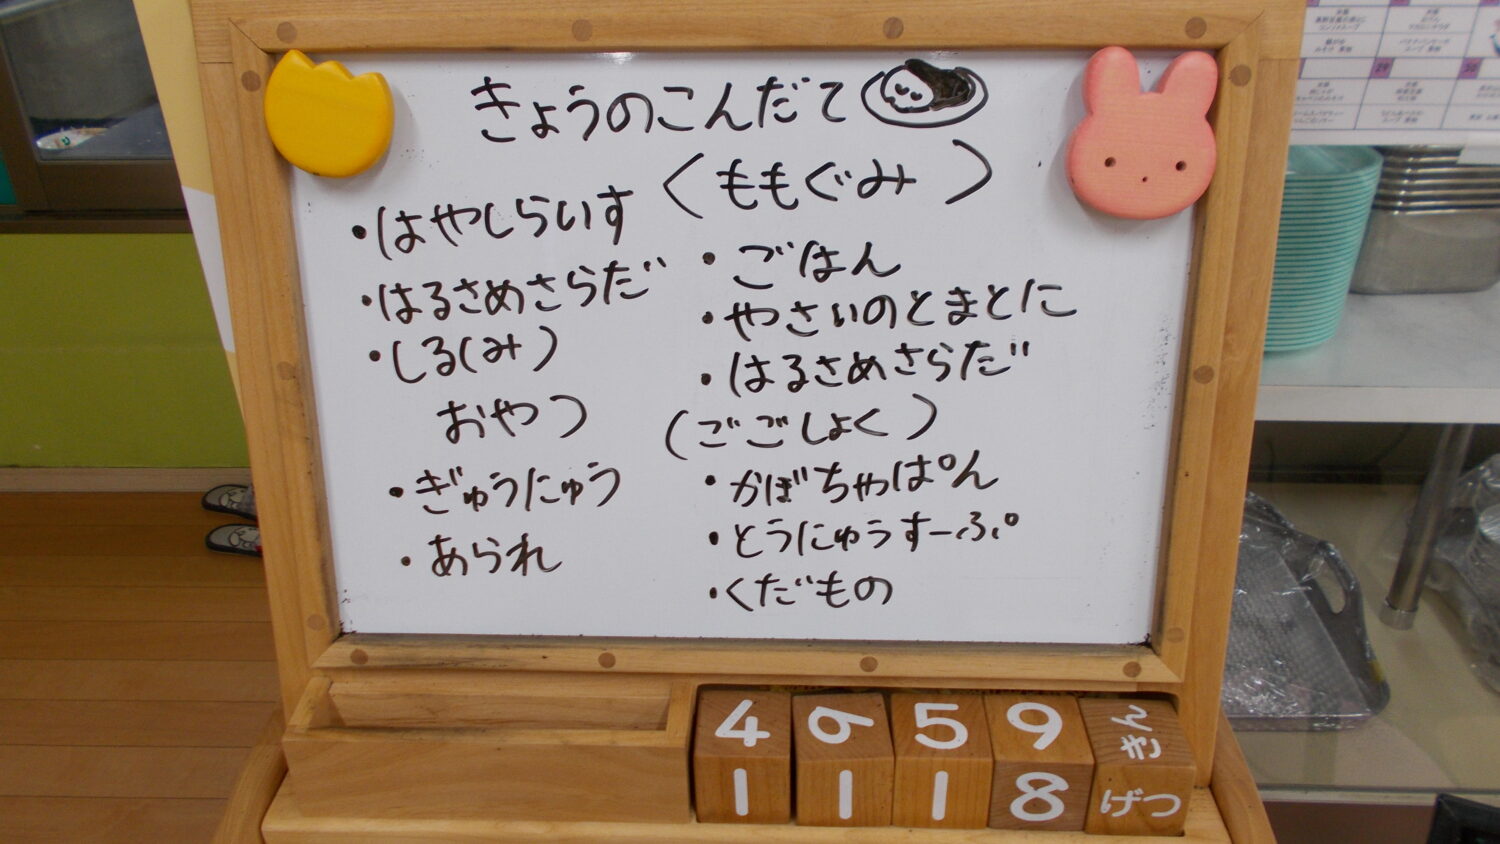 きょうのこんだて
・はやしらいす
・はるさめさらだ
・しる(み)
おやつ
・ぎゅうにゅう
・あられ
(ももぐみ)
・ごはん
・やさいのとまとに
・はるさめさらだ
(ごごしょく)
・かぼちゃぱん
・とうにゅうすーぷ
・くだもの
4 6 5 9 きん
1 1 1 8 げつ